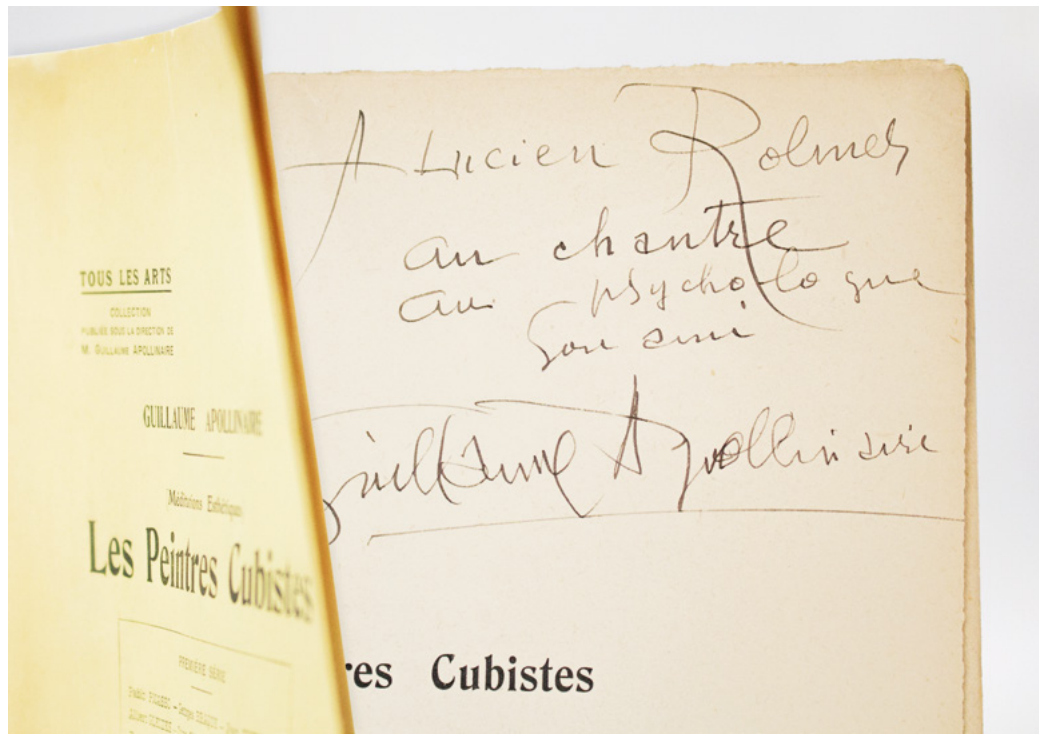 TOUS LES ARTS
COLLECTION
PUBLIÉE SOUS LA DIRECTION DE
M. GUILLAUME APOLLINAIRE
GUILLAUME APOLLINAIRE
Méditations Esthétiques
Les Peintres Cubistes
PREMIÈRE SÉRIE
Pablo PICASSO – Georges BRAQUE –
Albert GLEIZES –
A Lucien Rolmer
au chantre
au psychologue
Son ami
Guillaume Apollinaire
res Cubistes